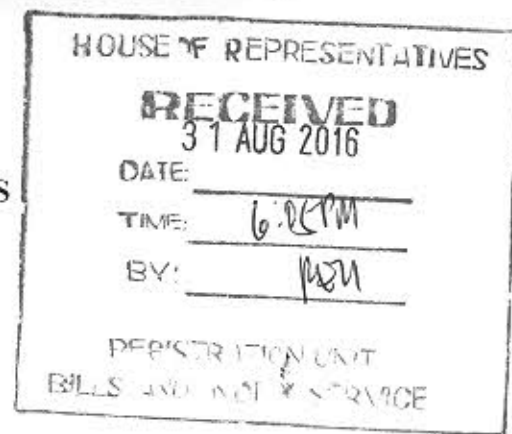 HOUSE OF REPRESENTATIVES
RECEIVED
31 AUG 2016
S
DATE:
TIME: 6:05PM
BY:
REGISTRATION UNIT
BILLS AND INDEX SERVICE